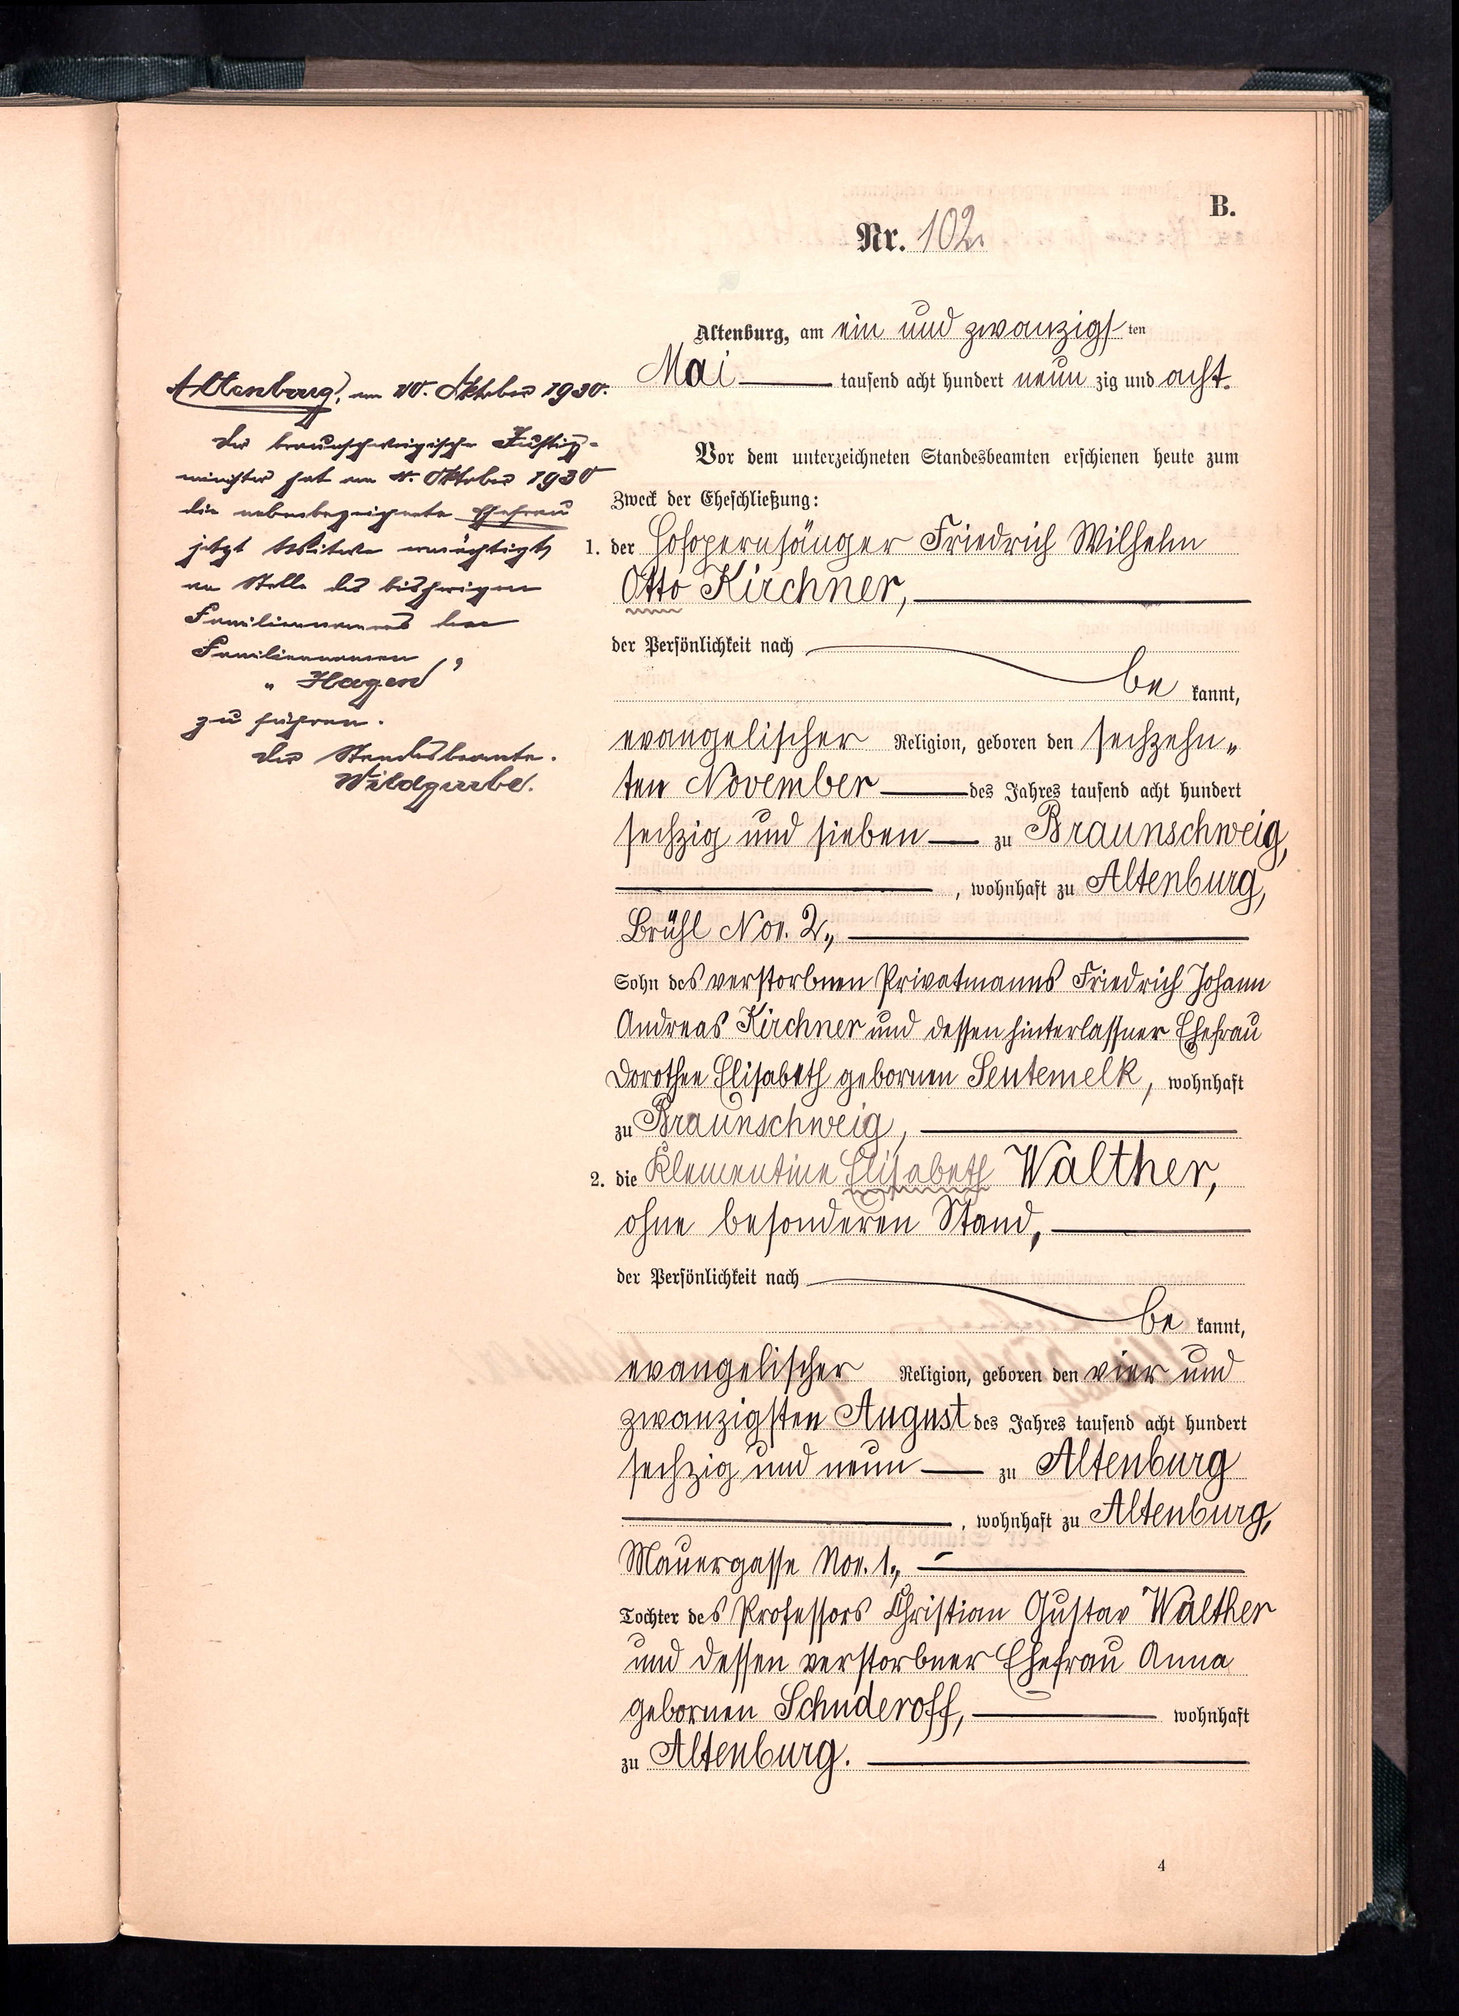 B.
Nr. 102.
Altenburg, am ein und zwanzigsten
Mai tausend acht hundert neun zig und acht.
Vor dem unterzeichneten Standesbeamten erschienen heute zum
Zweck der Eheschließung:
1. der Hofopernsänger Friedrich Wilhelm
Otto Kirchner,
der Persönlichkeit nach
be kannt,
evangelischer Religion, geboren den sechzehn-
ten November des Jahres tausend acht hundert
sechzig und sieben zu Braunschweig,
, wohnhaft zu Altenburg,
Brühl Nor. 2.,
Sohn des verstorbnen Privatmanns Friedrich Johann
Andreas Kirchner und dessen hinterlassner Ehefrau
Dorothee Elisabeth gebornen Sentemelk, wohnhaft
zu Braunschweig,
2. die Klementine Elisabeth Walther,
ohne besonderen Stand,
der Persönlichkeit nach
be kannt,
evangelischer Religion, geboren den vier und
zwanzigsten August des Jahres tausend acht hundert
sechzig und neun zu Altenburg
, wohnhaft zu Altenburg,
Mauergasse Nor. 1.,
Tochter des Professors Christian Gustav Walther
und dessen verstorbner Ehefrau Anna
gebornen Schuderoff, wohnhaft
zu Altenburg.
4
Altenburg, am 10. Oktober 1930.
Der braunschweigische Justiz-
minister hat am Oktober 1930
die nebenbezeichnete Ehefrau
jetzt Witwe ermächtigt,
an Stelle des bisherigen
Familiennamens den
Familiennamen
"Hagen"
zu führen.
Der Standesbeamte.
Wildgrube.